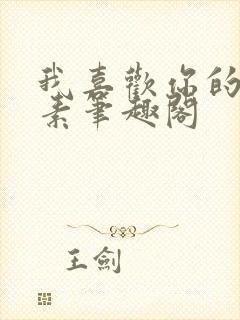 我喜歡你的
素筆趣閣
王劍